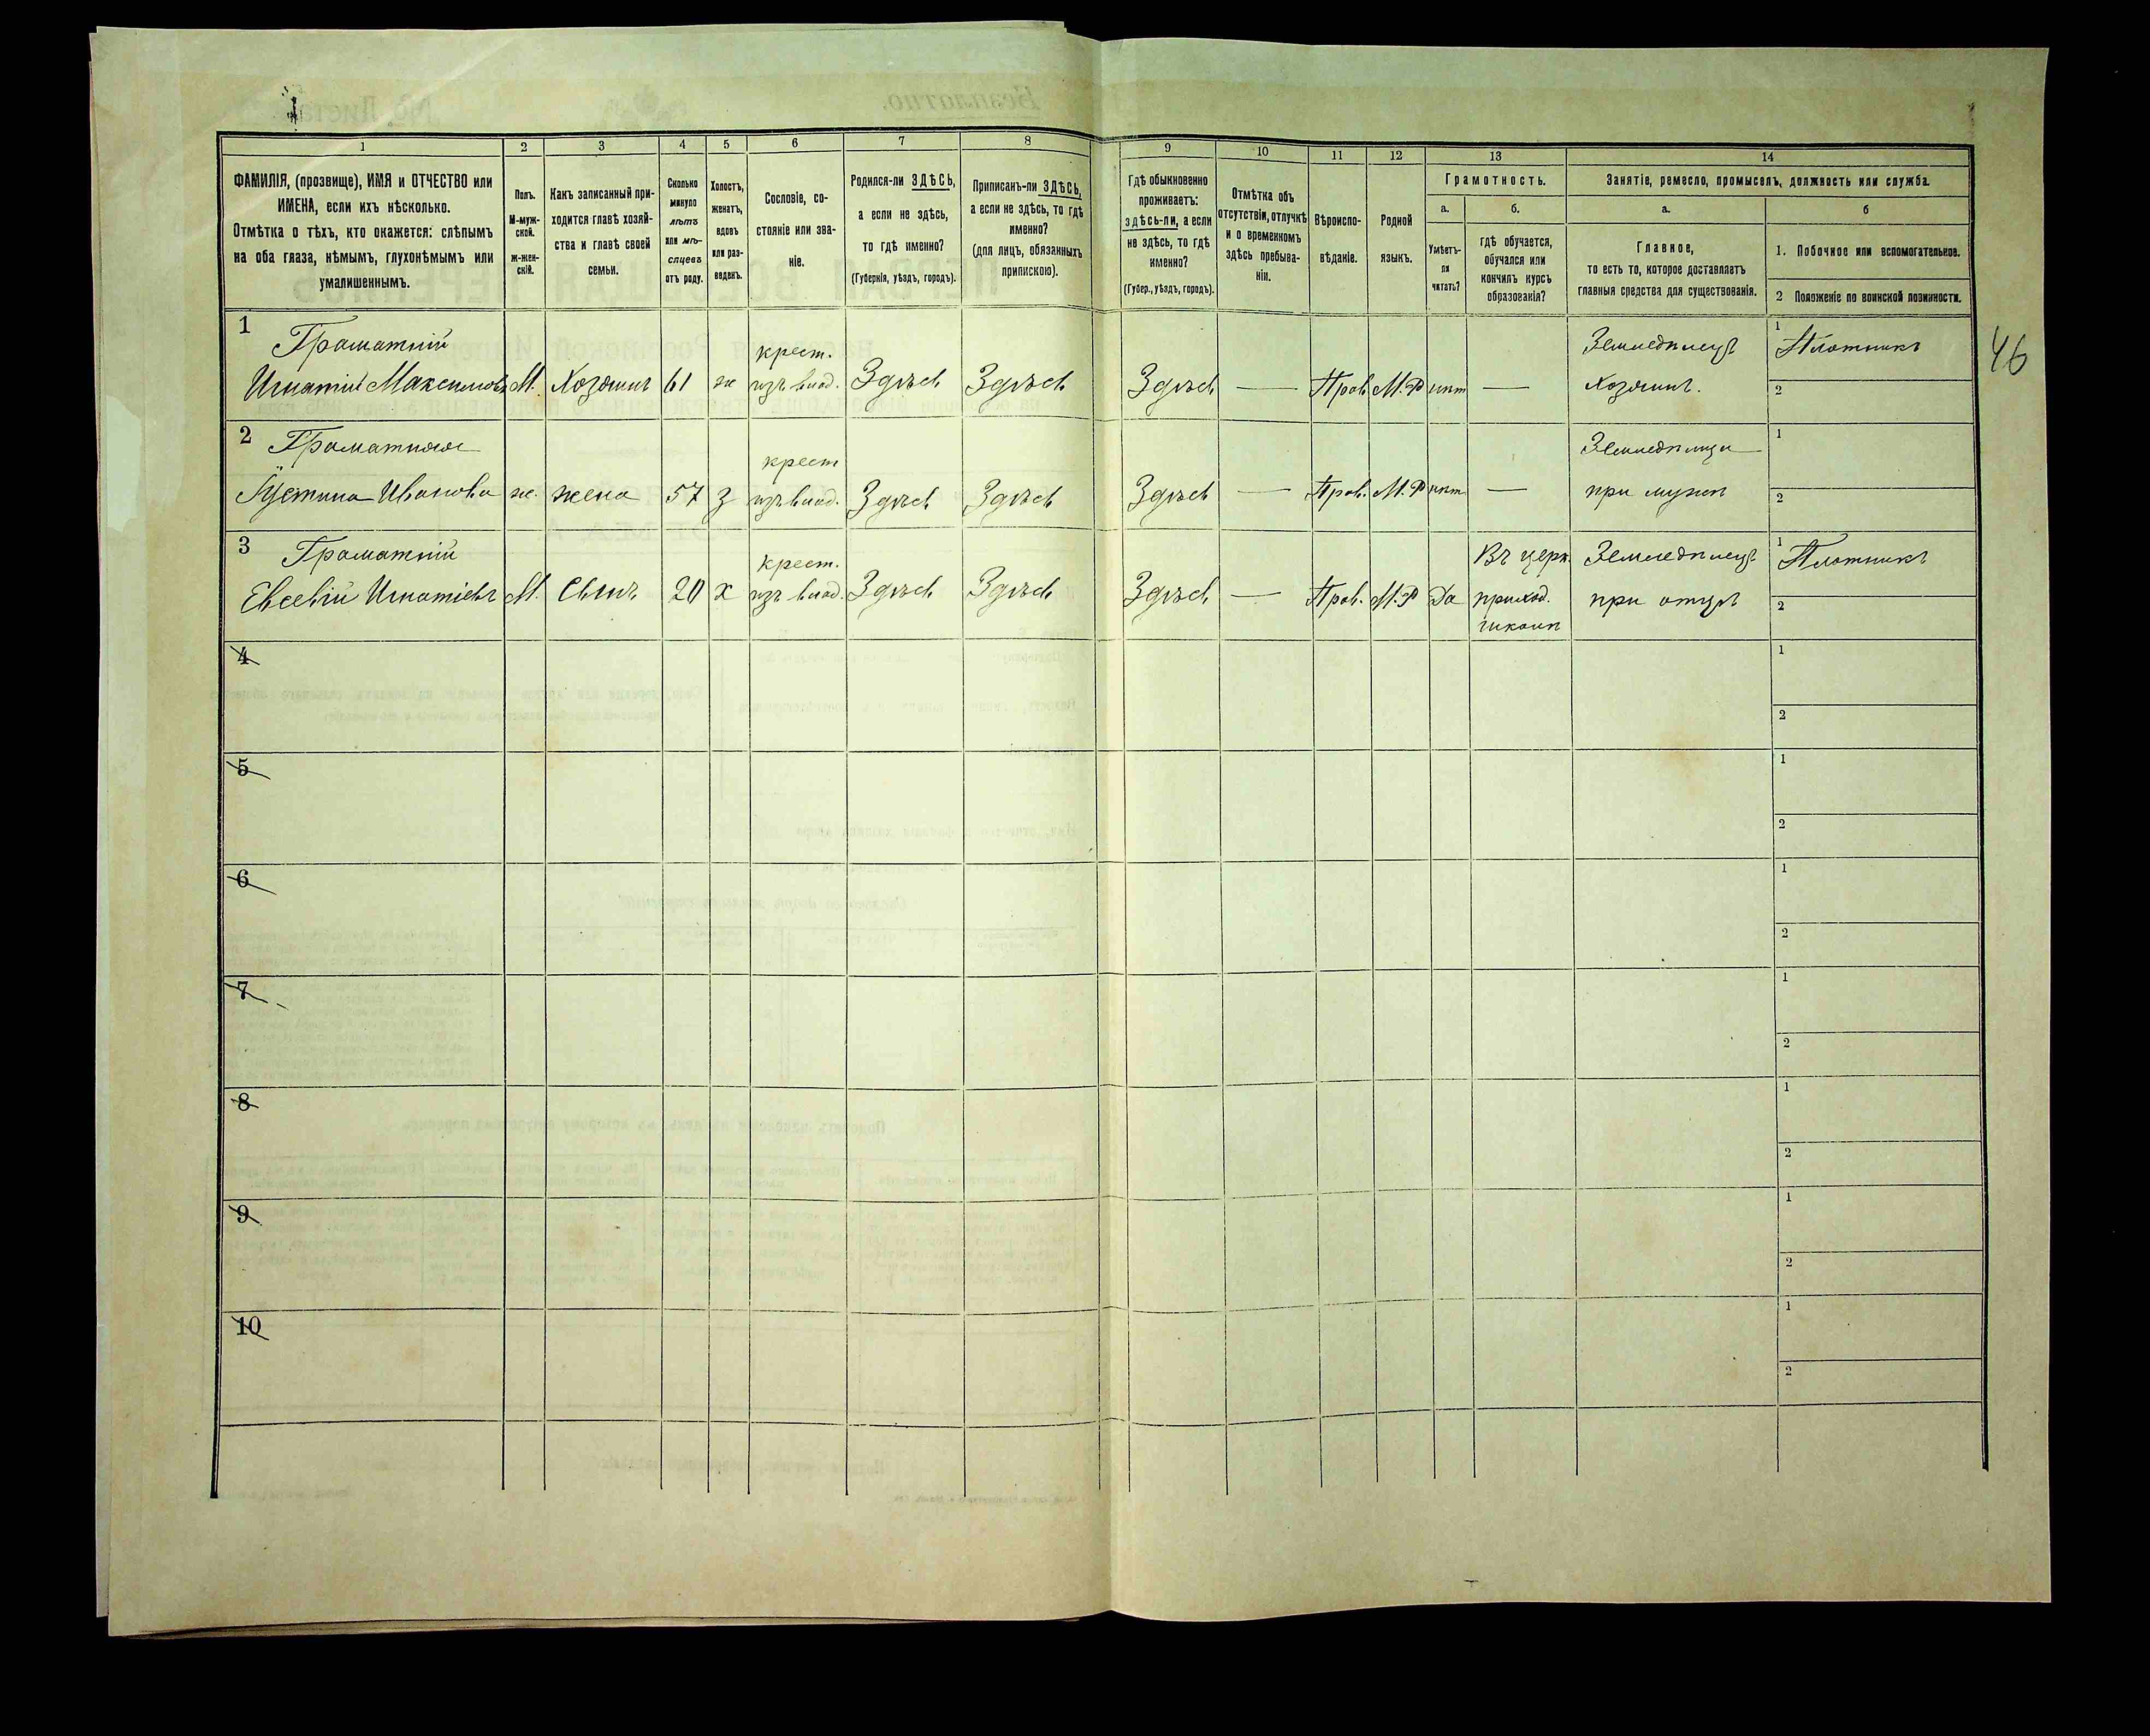 1 2 3 4 5 6 7 8 9 10 11 12 13 14
ФАМИЛІЯ, (прозвище), ИМЯ и ОТЧЕСТВО или
ИМЕНА, если ихъ нѣсколько.
Отмѣтка о тѣхъ, кто окажется: слѣпымъ
на оба глаза, нѣмымъ, глухонѣмымъ или
умалишеннымъ.
Полъ.
М-муж-
ской.
ж-жен-
скій.
Какъ записанный при-
ходится главѣ хозяй-
ства и главѣ своей
семьи.
Сколько
минуло
лѣтъ
или мѣ-
сяцевъ
отъ роду.
Холостъ,
женатъ,
вдовъ
или раз-
веденъ.
Сословіе, со-
стояніе или зва-
ніе.
Родился-ли ЗДѢСЬ,
а если не здѣсь,
то гдѣ именно?
(Губернія, уѣздъ, городъ).
Приписанъ-ли ЗДѢСЬ,
а если не здѣсь, то гдѣ
именно?
(для лицъ, обязанныхъ
припискою).
Гдѣ обыкновенно
проживаетъ:
здѣсь-ли, а если
не здѣсь, то гдѣ
именно?
(Губер., уѣздъ, городъ).
Отмѣтка объ
отсутствіи, отлучкѣ
и о временномъ
здѣсь пребыва-
ніи.
Вѣроиспо-
вѣданіе.
Родной
языкъ.
Грамотность.
а.
Умѣетъ-
ли
читать?
б.
гдѣ обучается,
обучался или
кончилъ курсъ
образованія?
Занятіе, ремесло, промыселъ, должность или служба.
а.
Главное,
то есть то, которое доставляетъ
главныя средства для существованія.
б
1. Побочное или вспомогательное.
2 Положеніе по воинской повинности.
46
1 Граматній крест. Земледѣлецъ 1 Плотникъ
Игнатій Максимовъ М. Хозяинъ 61 ж изъ влад. Здѣсь Здѣсь Здѣсь — Прав. М.Р нѣт — Хозяинъ. 2
2 Граматняя крест Земледѣлица 1
Іустина Иванова ж. жена 57 з изъ влад. Здѣсь Здѣсь Здѣсь — Прав. М.Р нѣт — при мужѣ 2
3 Граматній крест. Въ церк. Земледѣлецъ 1 Плотникъ
Евсевій Игнатіевъ М. Сынъ 20 х изъ влад. Здѣсь Здѣсь Здѣсь — Прав. М.Р Да приход. при отцѣ 2
школѣ
4 1
2
5 1
2
6 1
2
7 1
2
8 1
2
9 1
2
10 1
2